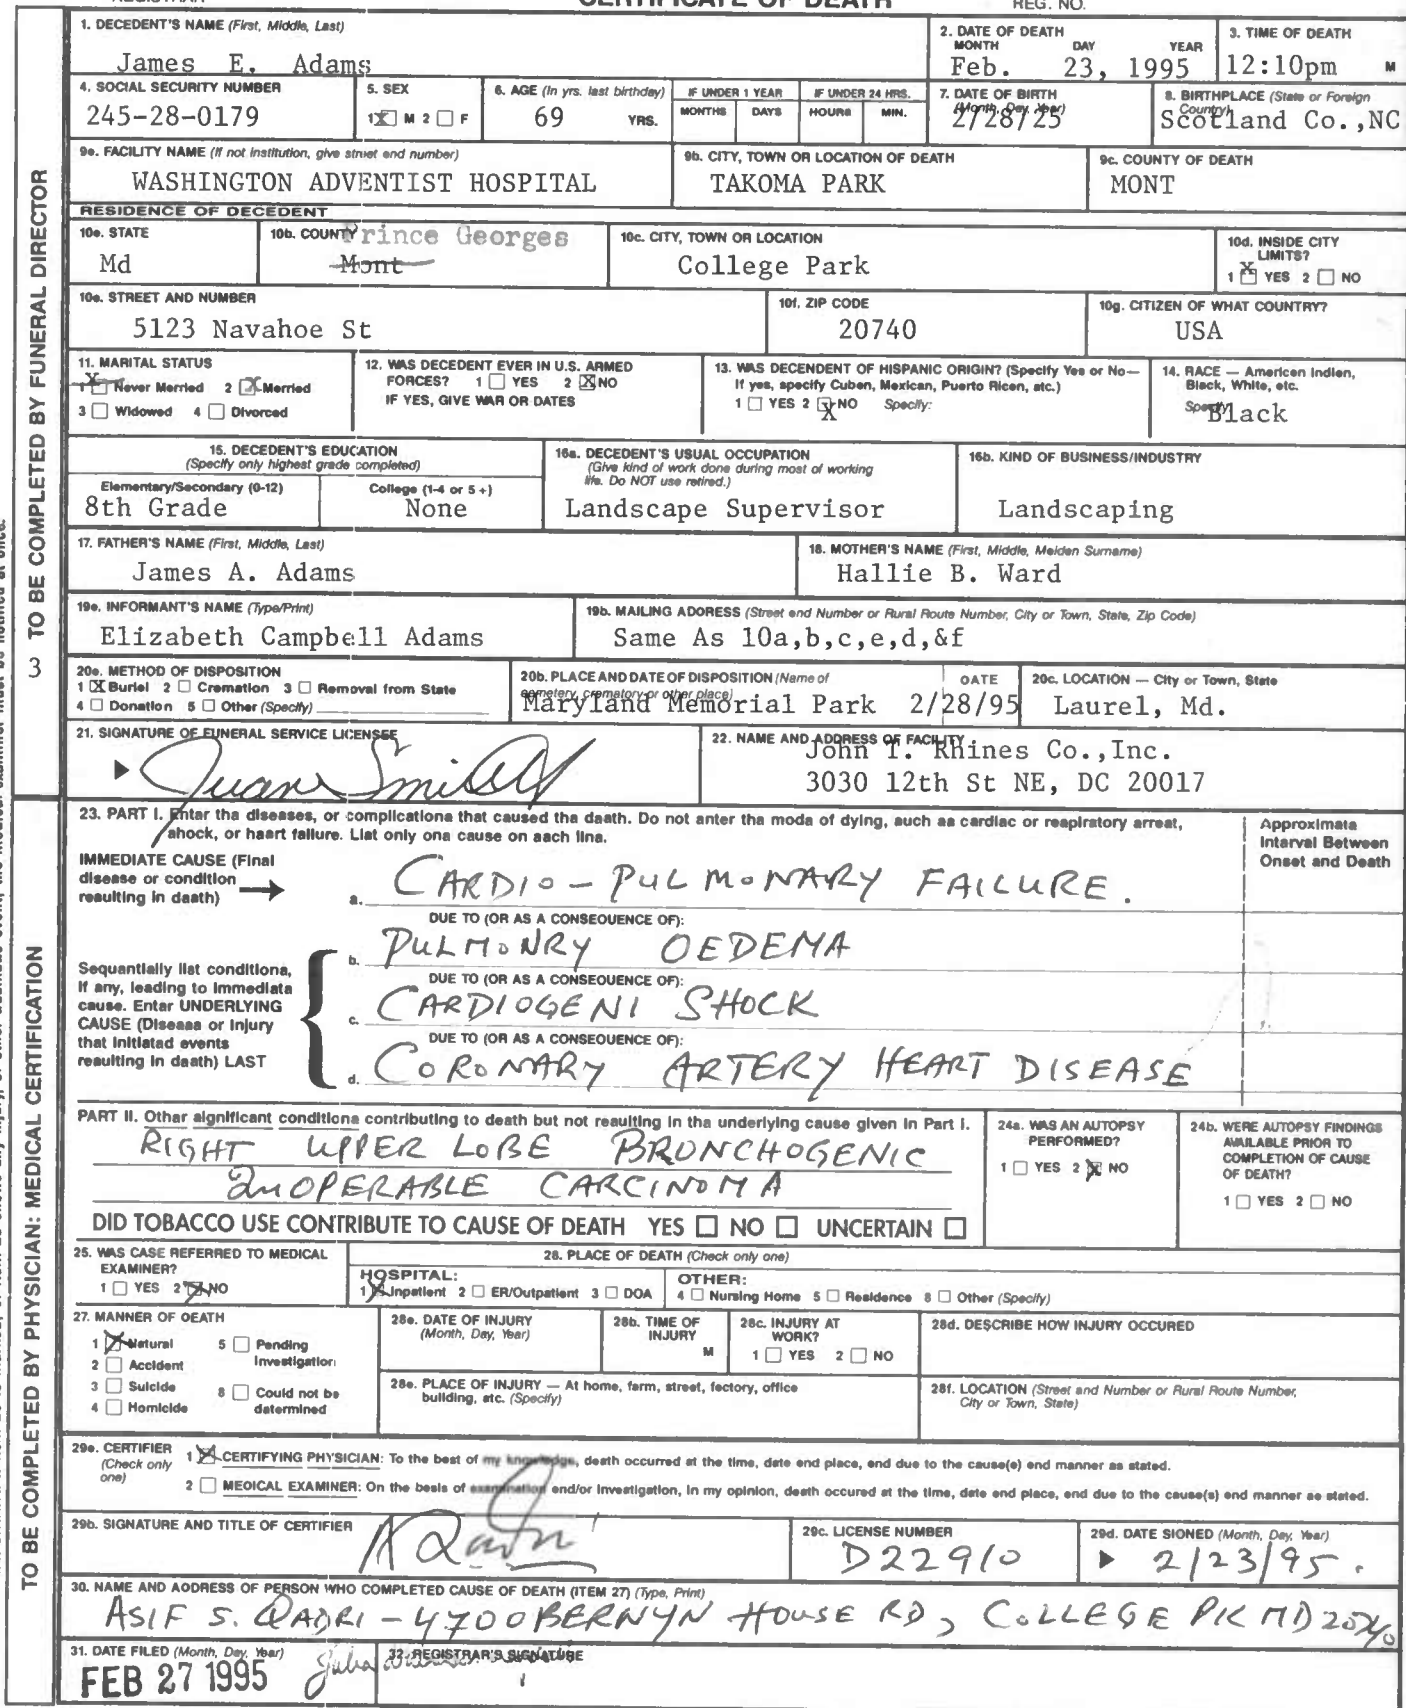 CERTIFICATE OF DEATH
REG. NO.
1. DECEDENT'S NAME (First, Middle, Last)
James E. Adams
2. DATE OF DEATH
MONTH DAY YEAR
Feb. 23, 1995
3. TIME OF DEATH
12:10pm M
4. SOCIAL SECURITY NUMBER
245-28-0179
5. SEX
1 X M 2 F
6. AGE (In yrs. last birthday)
69 YRS.
IF UNDER 1 YEAR
MONTHS DAYS
IF UNDER 24 HRS.
HOURS MIN.
7. DATE OF BIRTH
(Month, Day, Year)
2/28/25
8. BIRTHPLACE (State or Foreign
Country)
Scotland Co.,NC
9a. FACILITY NAME (If not institution, give street and number)
WASHINGTON ADVENTIST HOSPITAL
9b. CITY, TOWN OR LOCATION OF DEATH
TAKOMA PARK
9c. COUNTY OF DEATH
MONT
RESIDENCE OF DECEDENT
10a. STATE
Md
10b. COUNTY
Prince Georges
Mont
10c. CITY, TOWN OR LOCATION
College Park
10d. INSIDE CITY
LIMITS?
1 X YES 2 NO
10e. STREET AND NUMBER
5123 Navahoe St
10f. ZIP CODE
20740
10g. CITIZEN OF WHAT COUNTRY?
USA
11. MARITAL STATUS
1 X Never Married 2 X Married
3 Widowed 4 Divorced
12. WAS DECEDENT EVER IN U.S. ARMED
FORCES? 1 YES 2 X NO
IF YES, GIVE WAR OR DATES
13. WAS DECENDENT OF HISPANIC ORIGIN? (Specify Yes or No—
If yes, specify Cuban, Mexican, Puerto Rican, etc.)
1 YES 2 X NO Specify:
14. RACE — American Indian,
Black, White, etc.
Specify
Black
15. DECEDENT'S EDUCATION
(Specify only highest grade completed)
Elementary/Secondary (0-12)
8th Grade
College (1-4 or 5+)
None
16a. DECEDENT'S USUAL OCCUPATION
(Give kind of work done during most of working
life. Do NOT use retired.)
Landscape Supervisor
16b. KIND OF BUSINESS/INDUSTRY
Landscaping
17. FATHER'S NAME (First, Middle, Last)
James A. Adams
18. MOTHER'S NAME (First, Middle, Maiden Surname)
Hallie B. Ward
19a. INFORMANT'S NAME (Type/Print)
Elizabeth Campbell Adams
19b. MAILING ADDRESS (Street and Number or Rural Route Number, City or Town, State, Zip Code)
Same As 10a,b,c,e,d,&f
20a. METHOD OF DISPOSITION
1 X Burial 2 Cremation 3 Removal from State
4 Donation 5 Other (Specify)
20b. PLACE AND DATE OF DISPOSITION (Name of
cemetery, crematory or other place)
Maryland Memorial Park
DATE
2/28/95
20c. LOCATION — City or Town, State
Laurel, Md.
21. SIGNATURE OF FUNERAL SERVICE LICENSEE
Juan Smith
22. NAME AND ADDRESS OF FACILITY
John T. Rhines Co.,Inc.
3030 12th St NE, DC 20017
TO BE COMPLETED BY FUNERAL DIRECTOR
3
23. PART I. Enter the diseases, or complications that caused the death. Do not enter the mode of dying, such as cardiac or respiratory arrest,
shock, or heart failure. List only one cause on each line.
Approximate
Interval Between
Onset and Death
IMMEDIATE CAUSE (Final
disease or condition
resulting in death)
a. CARDIO-PULMONARY FAILURE.
DUE TO (OR AS A CONSEQUENCE OF):
b. PULMONRY OEDEMA
DUE TO (OR AS A CONSEQUENCE OF):
Sequentially list conditions,
if any, leading to immediate
cause. Enter UNDERLYING
CAUSE (Disease or injury
that initiated events
resulting in death) LAST
c. CARDIOGENI SHOCK
DUE TO (OR AS A CONSEQUENCE OF):
d. CORONARY ARTERY HEART DISEASE
PART II. Other significant conditions contributing to death but not resulting in the underlying cause given in Part I.
RIGHT UPPER LOBE BRONCHOGENIC
INOPERABLE CARCINOMA
DID TOBACCO USE CONTRIBUTE TO CAUSE OF DEATH YES NO UNCERTAIN
24a. WAS AN AUTOPSY
PERFORMED?
1 YES 2 X NO
24b. WERE AUTOPSY FINDINGS
AVAILABLE PRIOR TO
COMPLETION OF CAUSE
OF DEATH?
1 YES 2 NO
25. WAS CASE REFERRED TO MEDICAL
EXAMINER?
1 YES 2 X NO
26. PLACE OF DEATH (Check only one)
HOSPITAL:
1 X Inpatient 2 ER/Outpatient 3 DOA
OTHER:
4 Nursing Home 5 Residence 6 Other (Specify)
27. MANNER OF DEATH
1 X Natural 5 Pending
2 Accident Investigation
3 Suicide 6 Could not be
4 Homicide determined
28a. DATE OF INJURY
(Month, Day, Year)
28b. TIME OF
INJURY
M
28c. INJURY AT
WORK?
1 YES 2 NO
28d. DESCRIBE HOW INJURY OCCURED
28e. PLACE OF INJURY — At home, farm, street, factory, office
building, etc. (Specify)
28f. LOCATION (Street and Number or Rural Route Number,
City or Town, State)
29a. CERTIFIER
(Check only
one)
1 X CERTIFYING PHYSICIAN: To the best of my knowledge, death occurred at the time, date and place, and due to the cause(s) and manner as stated.
2 MEDICAL EXAMINER: On the basis of examination and/or investigation, in my opinion, death occured at the time, date and place, and due to the cause(s) and manner as stated.
29b. SIGNATURE AND TITLE OF CERTIFIER
A Qadri
29c. LICENSE NUMBER
D22910
29d. DATE SIGNED (Month, Day, Year)
2/23/95.
30. NAME AND ADDRESS OF PERSON WHO COMPLETED CAUSE OF DEATH (ITEM 27) (Type, Print)
ASIF S. QADRI - 4700 BERNYN HOUSE RD, COLLEGE PK MD 20740
31. DATE FILED (Month, Day, Year)
FEB 27 1995
32. REGISTRAR'S SIGNATURE
TO BE COMPLETED BY PHYSICIAN: MEDICAL CERTIFICATION